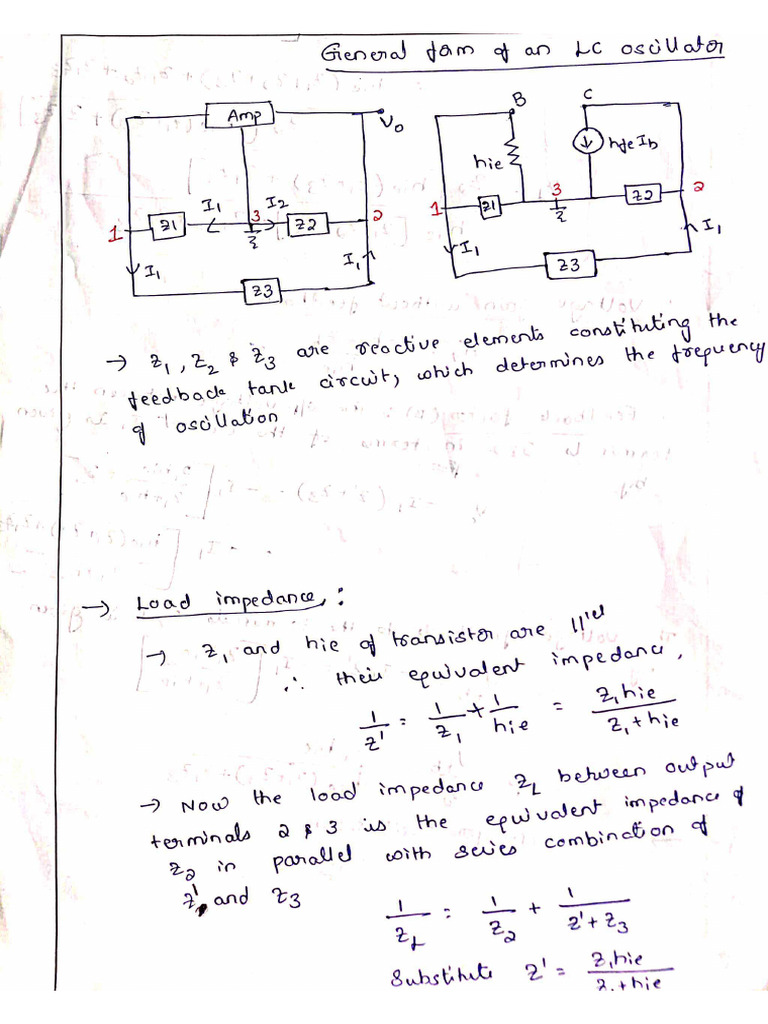 General form of an LC oscillator
Amp
V0
B
C
hie
hfe Ib
I1
I2
3
1
Z1
Z2
2
I1
I1
Z3
3
1
Z1
Z2
2
I1
I1
Z3
→ Z1, Z2 & Z3 are reactive elements constituting the
feedback tank circuit, which determines the frequency
of oscillation
→ Load impedance, :
→ Z1 and hie of transistor are ||lel
∴ their equivalent impedance,
1/Z' = 1/Z1 + 1/hie = Z1hie/Z1+hie
→ Now the load impedance ZL between output
terminals 2 & 3 is the equivalent impedance of
Z2 in parallel with series combination of
Z' and Z3
1/ZL = 1/Z2 + 1/Z'+Z3
Substitute Z' = Z1hie/Z1+hie